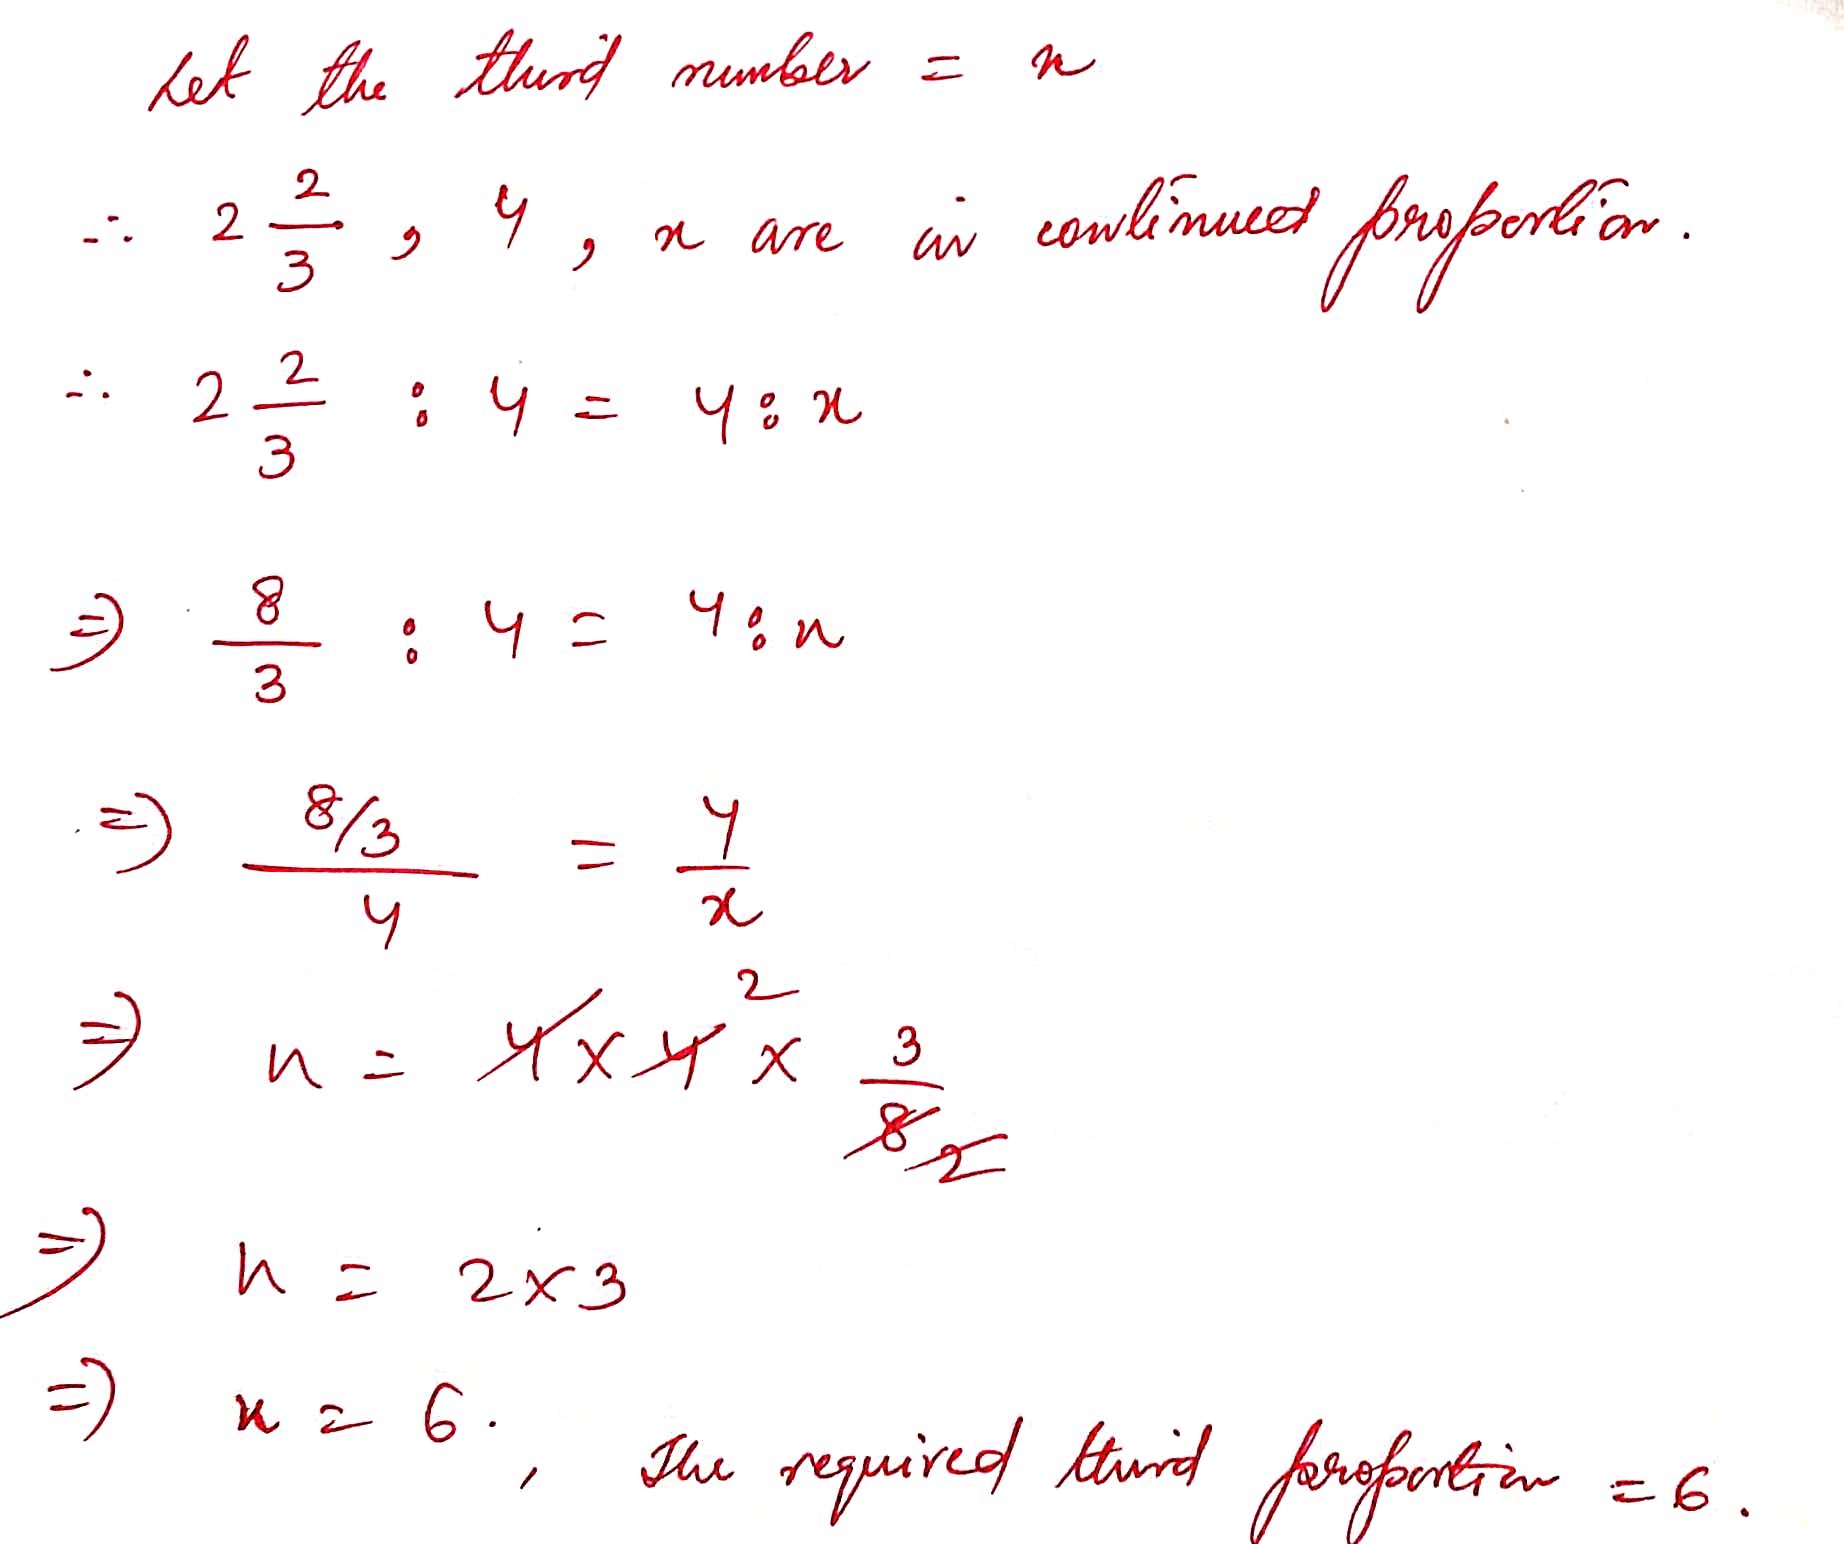 Let the third number = x
∴ 2 2/3 , 4 , x are in continued proportion.
∴ 2 2/3 : 4 = 4 : x
⇒ 8/3 : 4 = 4 : x
⇒ (8/3)/4 = 4/x
⇒ x = 4 × 4 2 × 3/8 2
⇒ x = 2 × 3
⇒ x = 6 . , The required third proportion = 6 .